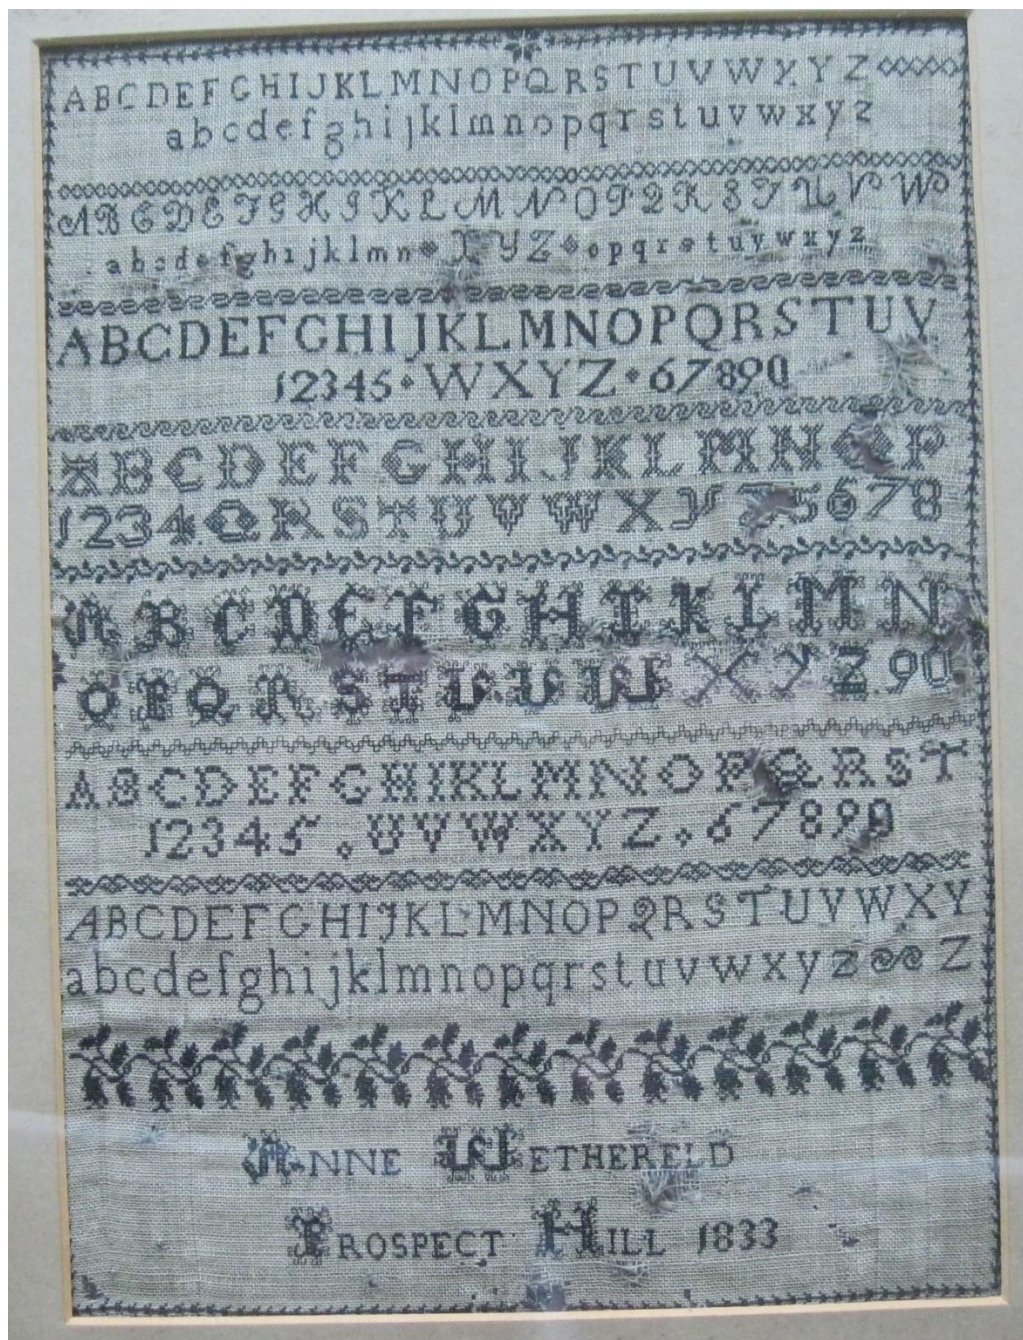 ABCDEFGHIJKLMNOPQRSTUVWXYZ
abcdefghijklmnopqrstuvwxyz
ABCDEFGHIJKLMNOPQRSTUVW
abcdefghijklmn XYZ opqrstuvwxyz
ABCDEFGHIJKLMNOPQRSTUV
12345 WXYZ 67890
ABCDEFGHIJKLMNOP
1234 QRSTUVWXY 5678
ABCDEFGHIKLMN
OPQRSTUVWXYZ 90
ABCDEFGHIKLMNOPQRST
12345 . UVWXYZ . 67890
ABCDEFGHIJKLMNOPQRSTUVWXY
abcdefghijklmnopqrstuvwxyz Z
ANNE WETHERELD
PROSPECT HILL 1833